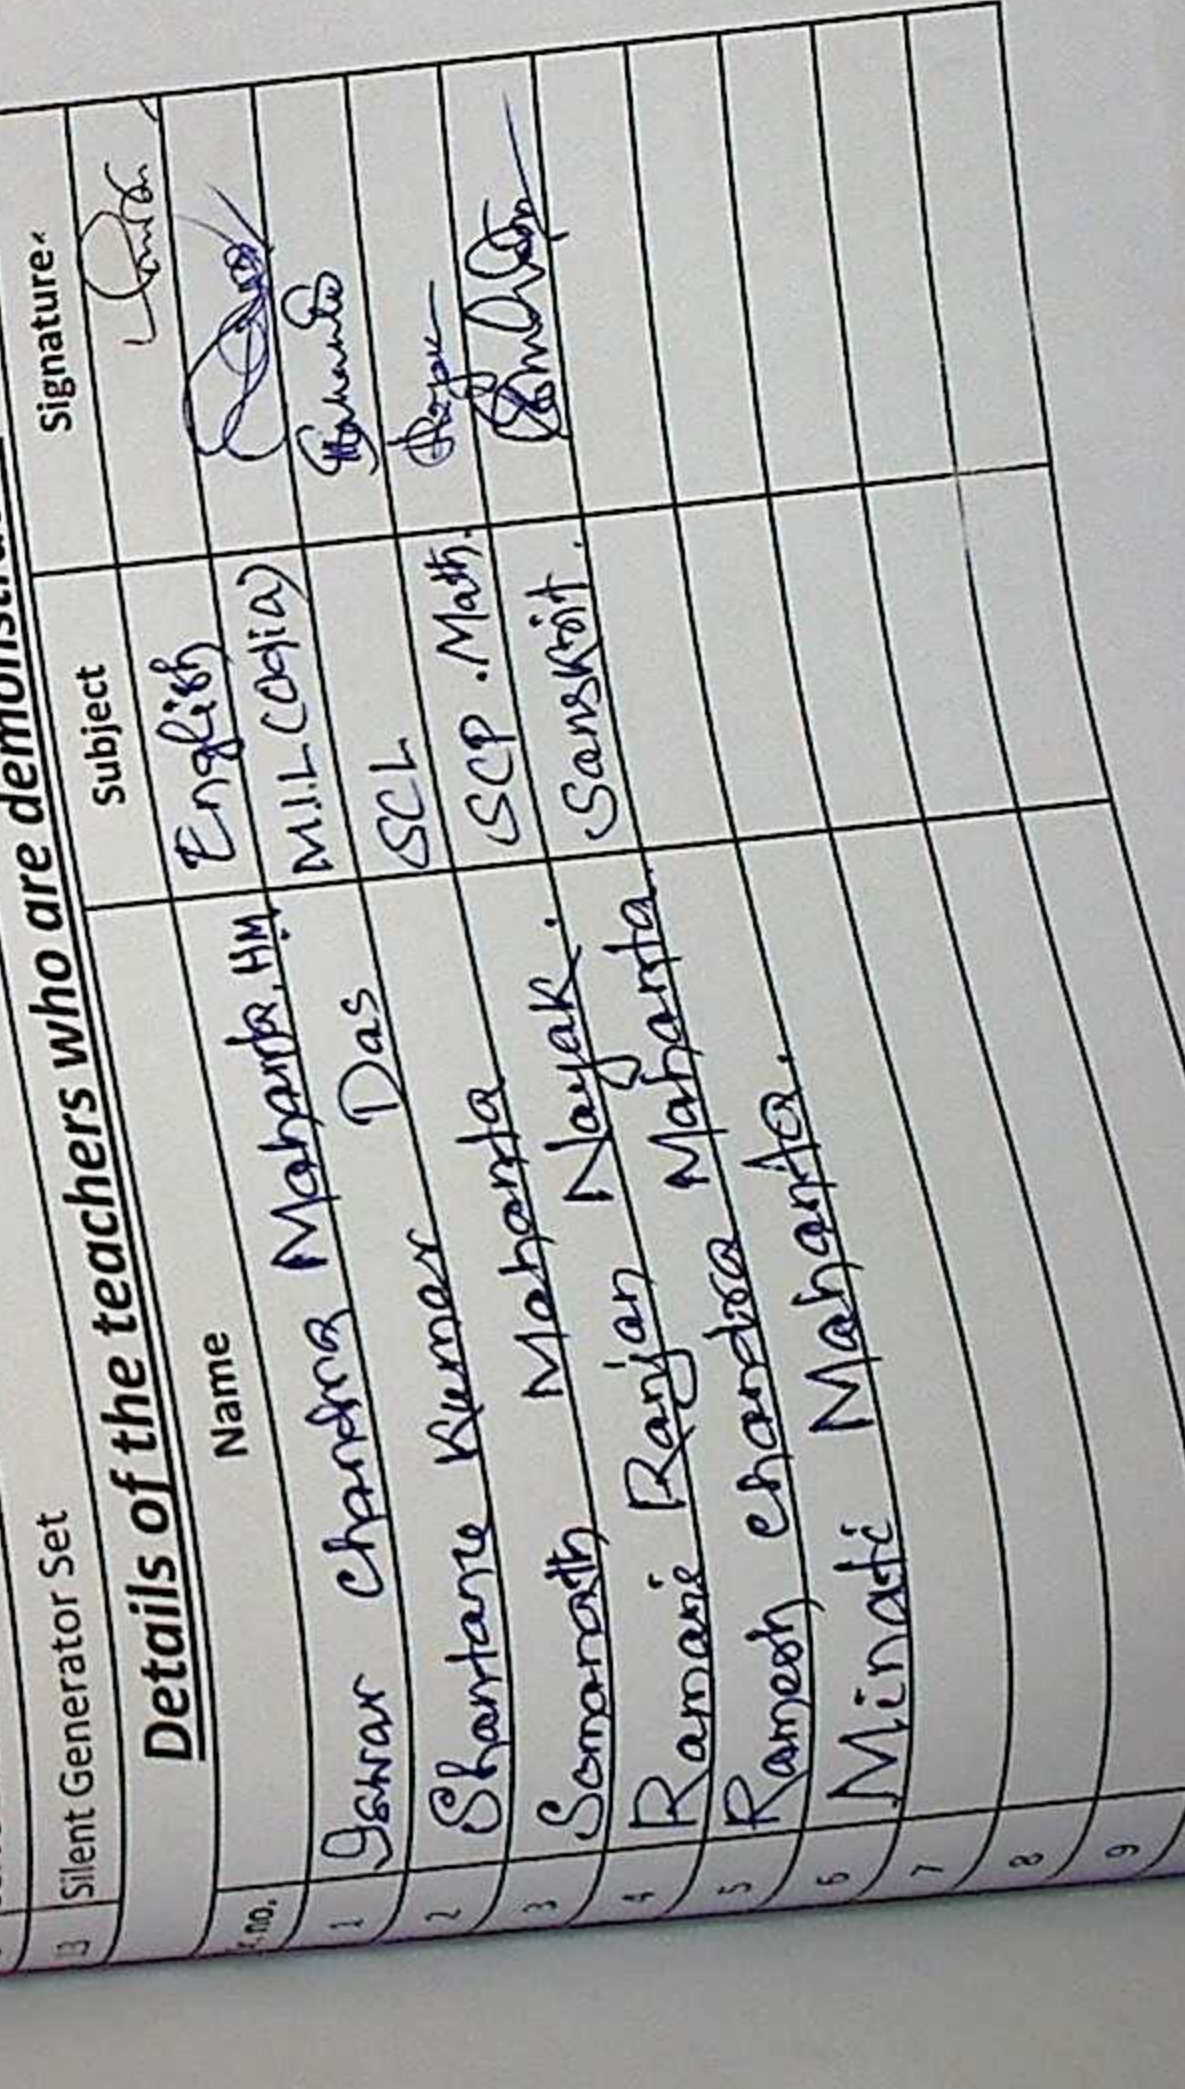 13 Silent Generator Set
Details of the teachers who are
no. Name Subject Signature
1 Iswar Chandra Mahanta, HM. English
2 Shantanu Kumar Das M.I.L (Odia)
3 Somanath Mahanta SCL
4 Ramani Ranjan Nayak. SCP. Math.
5 Ramesh Chandra Mahanta. Sanskrit.
6 Minati Mahanta.
7
8
9